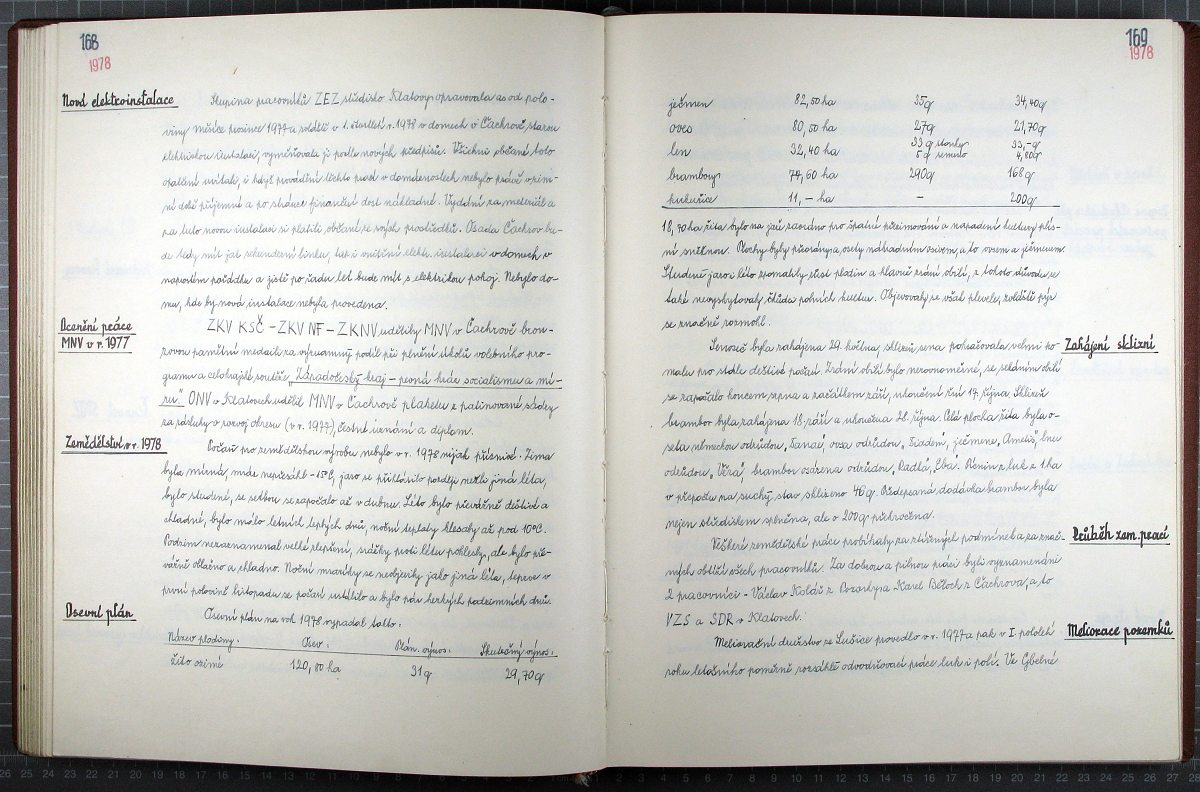 168
1978
Nová elektroinstalace
Skupina pracovníků ZEZ středisko Klatovy opravovala as od polo-
viny měsíce prosince 1977 a zvláště v 1. čtvrtletí r. 1978 v domech v Čachrově starou
elektrickou instalaci, vyměňovala ji podle nových předpisů. Všichni občané toto
opatření uvítali, i když provádění těchto prací v domácnostech nebylo právě v zim-
ní době příjemné a po stránce finanční dost nákladné. Vydání za materiál a
za tuto novou instalaci si platili občané ze svých prostředků. Osada Čachrov bu-
de tedy mít jak sekunderní linku, tak i vnitřní elektr. instalaci v domech v
naprostém pořádku a jistě po řadu let bude mít s elektrikou pokoj. Nebylo do-
mu, kde by nová instalace nebyla provedena.
Ocenění práce
MNV v r. 1977
ZKV KSČ - ZKV NF - ZKNV udělily MNV v Čachrově bron-
zovou pamětní medaili za významný podíl při plnění úkolů volebního pro-
gramu a celokrajské soutěže „Západočeský kraj - pevná hráz socialismu a mí-
ru". ONV v Klatovech udělil MNV v Čachrově plaketu z patinované sádry
za zásluhy o rozvoj okresu (v r. 1977), čestné uznání a diplom.
Zemědělství v r. 1978
Počasí pro zemědělskou výrobu nebylo v r. 1978 nijak příznivé. Zima
byla mírná, mráz nepřesáhl -15°C, jaro se přihlásilo později nežli jiná léta,
bylo studené, se setbou se započalo až v dubnu. Léto bylo převážně deštivé a
chladné, bylo málo letních teplých dnů, noční teploty klesaly až pod 10°C.
Podzim nezaznamenal velké zlepšení, srážky proti létu poklesly, ale bylo pře-
vážně oblačno a chladno. Noční mrazíky se neobjevily jako jiná léta, teprve v
první polovině listopadu se počasí ustálilo a bylo pár hezkých podzimních dnů.
Osevní plán
Osevní plán na rok 1978 vypadal takto:
Název plodiny: Osev: Plán. výnos: Skutečný výnos:
žito ozimé 120,80 ha 31 q 29,70 q
169
1978
ječmen 82,50 ha 35 q 34,40 q
oves 80,50 ha 27 q 21,70 q
len 32,40 ha 33 q stonky 5 q semeno 33,- q 4,80 q
brambory 74,60 ha 290 q 168 q
kukuřice 11,- ha - 200 q
18,70 ha žita bylo na jaře zaoráno pro špatné přezimování a napadení kultury plís-
ní sněžnou. Plochy byly přeorány a osety náhradním osivem, a to ovsem a ječmenem.
Studené jaro i léto zpomalily růst pladin a hlavně zrání obilí, z tohoto důvodu se
také nevyskytovaly škůdci polních kultur. Objevovaly se však plevele, zvláště pýr
se značně rozmohl.
Zahájení sklizní
Senoseč byla zahájena 29. května, sklizeň sena pokračovala velmi po-
malu pro stále deštivé počasí. Zrání obilí bylo nerovnoměrné, se sekáním obilí
se započalo koncem srpna a začátkem září, ukončení žní 17. října. Sklizeň
brambor byla zahájena 18. září a ukončena 28. října. Celá plocha žita byla o-
seta německou odrůdou „Danaé", ovsa odrůdou „Diadém", ječmene „Ametis", lnu
odrůdou „Věra", brambor osázena odrůdou „Radka", „Eba". Pícnin z luk z 1 ha
v přepočtu na suchý stav sklizeno 40 q. Předepsaná dodávka brambor byla
nejen střediskem splněna, ale o 200 q překročena.
Průběh zem. prací
Veškeré zemědělské práce probíhaly za ztížených podmínek a za znač-
ných obtíží všech pracovníků. Za dobrou a pilnou práci byli vyznamenáni
2 pracovníci - Václav Koldů z a Karel Běloch z Čachrova, a to
VZS a SDR v Klatovech.
Meliorace pozemků
Meliorační družstvo ze Sušice provedlo v r. 1977 a pak v I. pololetí
roku letošního poměrně rozsáhlé odvodňovací práce luk i polí. Ve Gbelné